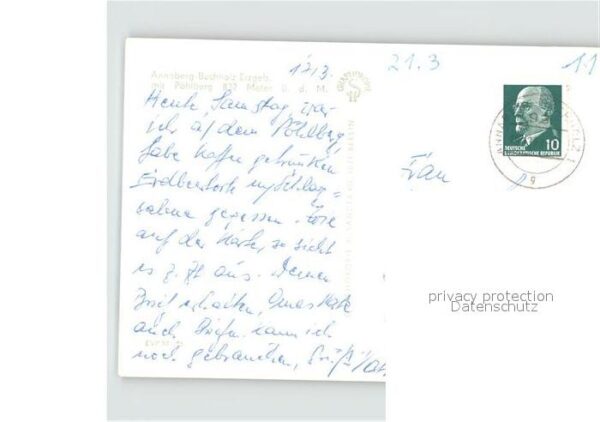 17.3.
21.3
11
Annaberg-Buchholz Erzgeb.
mit Pöhlberg 832 Meter ü. d. M.
Heute Samstag war
ich auf dem Pöhlberg,
habe Kaffee getrunken
Erdbeertorte m. Schlag=
sahne gegessen.
auf der Karte, so sieht
es z. Zt aus. Deinen
Brief erhalten, Omas Karte
auch. Briefm. kann ich
noch gebrauchen,
Frau
DEUTSCHE
DEMOKRATISCHE REPUBLIK
10
privacy protection
Datenschutz